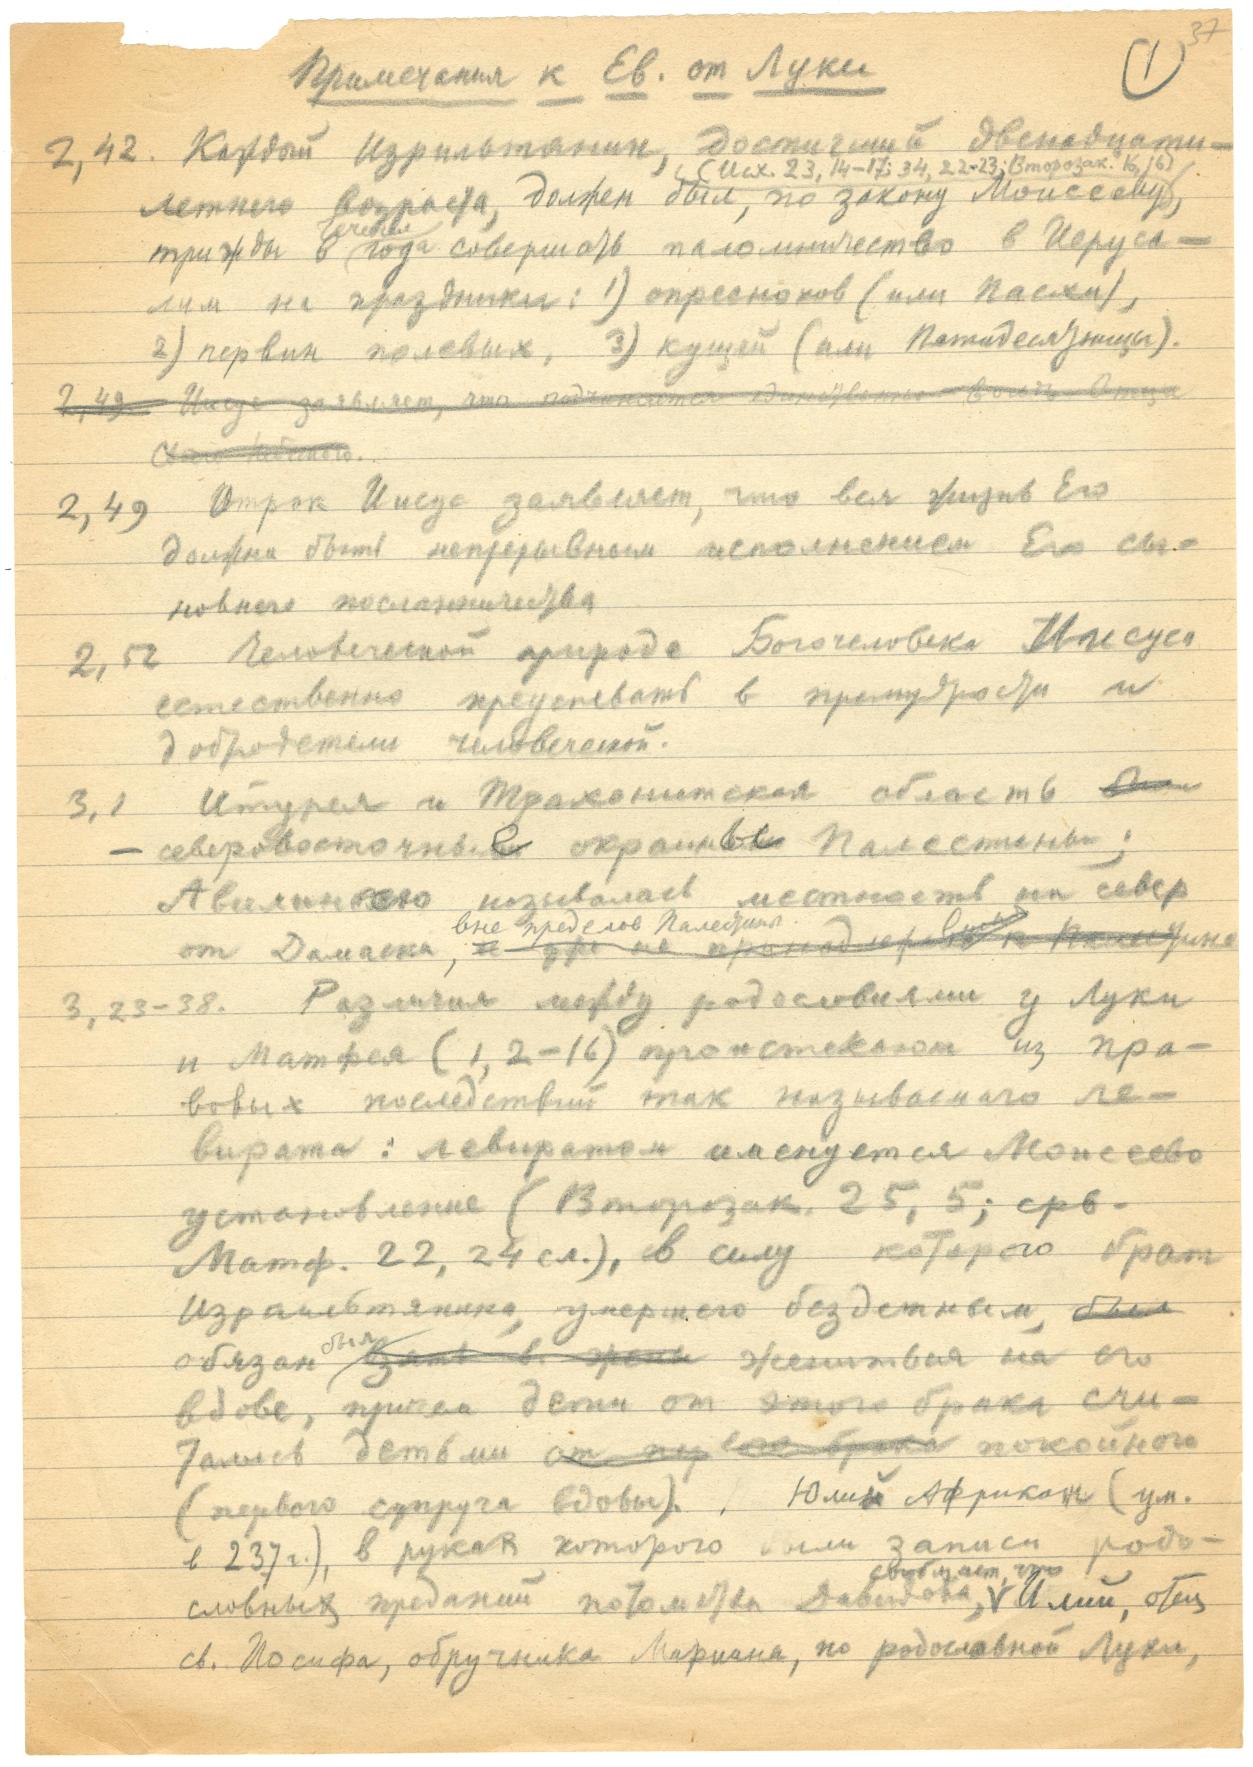 37
1
Примечания к Ев. от Луки
2,42. Каждый Израильтянин, достигший двенадцати-
(Исх. 23, 14-17; 34, 22-23; Второзак. 16, 16)
летнего возраста, должен был, по закону Моисееву,
течение
трижды в года совершать паломничество в Иеруса-
лим на праздники: 1) опресноков (или Пасхи),
2) первин полевых, 3) кущей (или Пятидесятницы).
2,49 Иисус заявляет, что подчиняется единственно воле Отца
Своего Небесного.
2,49 Отрок Иисус заявляет, что вся жизнь Его
должна быть непрерывным исполнением Его сы-
новнего посланничества
2,52 Человеческой природе Богочеловека Иисуса
естественно преуспевать в премудрости и
добродетели человеческой.
3,1 Итурея и Трахонитская область
— северовосточные окраины Палестины;
Авилинею называлась местность на север
вне пределов Палестины
от Дамаска, и где не принадлежавшая к Палестине
3,23-38. Различия между родословиями у Луки
и Матфея (1, 2-16) проистекают из пра-
вовых последствий так называемого ле-
вирата: левиратом именуется Моисеево
установление (Второзак. 25, 5; срв.
Матф. 22, 24 сл.), в силу которого брат
Израильтянина, умершего бездетным, был
был
обязан взять в жены жениться на его
вдове, причем дети от этого брака счи-
тались детьми от брака покойного
(первого супруга вдовы). Юлий Африкан (ум.
в 237 г.), в руках которого были записи родо-
сообщает, что
словных преданий потомства Давидова, V Илий, отец
св. Иосифа, обручника Мариина, по родословной Луки,